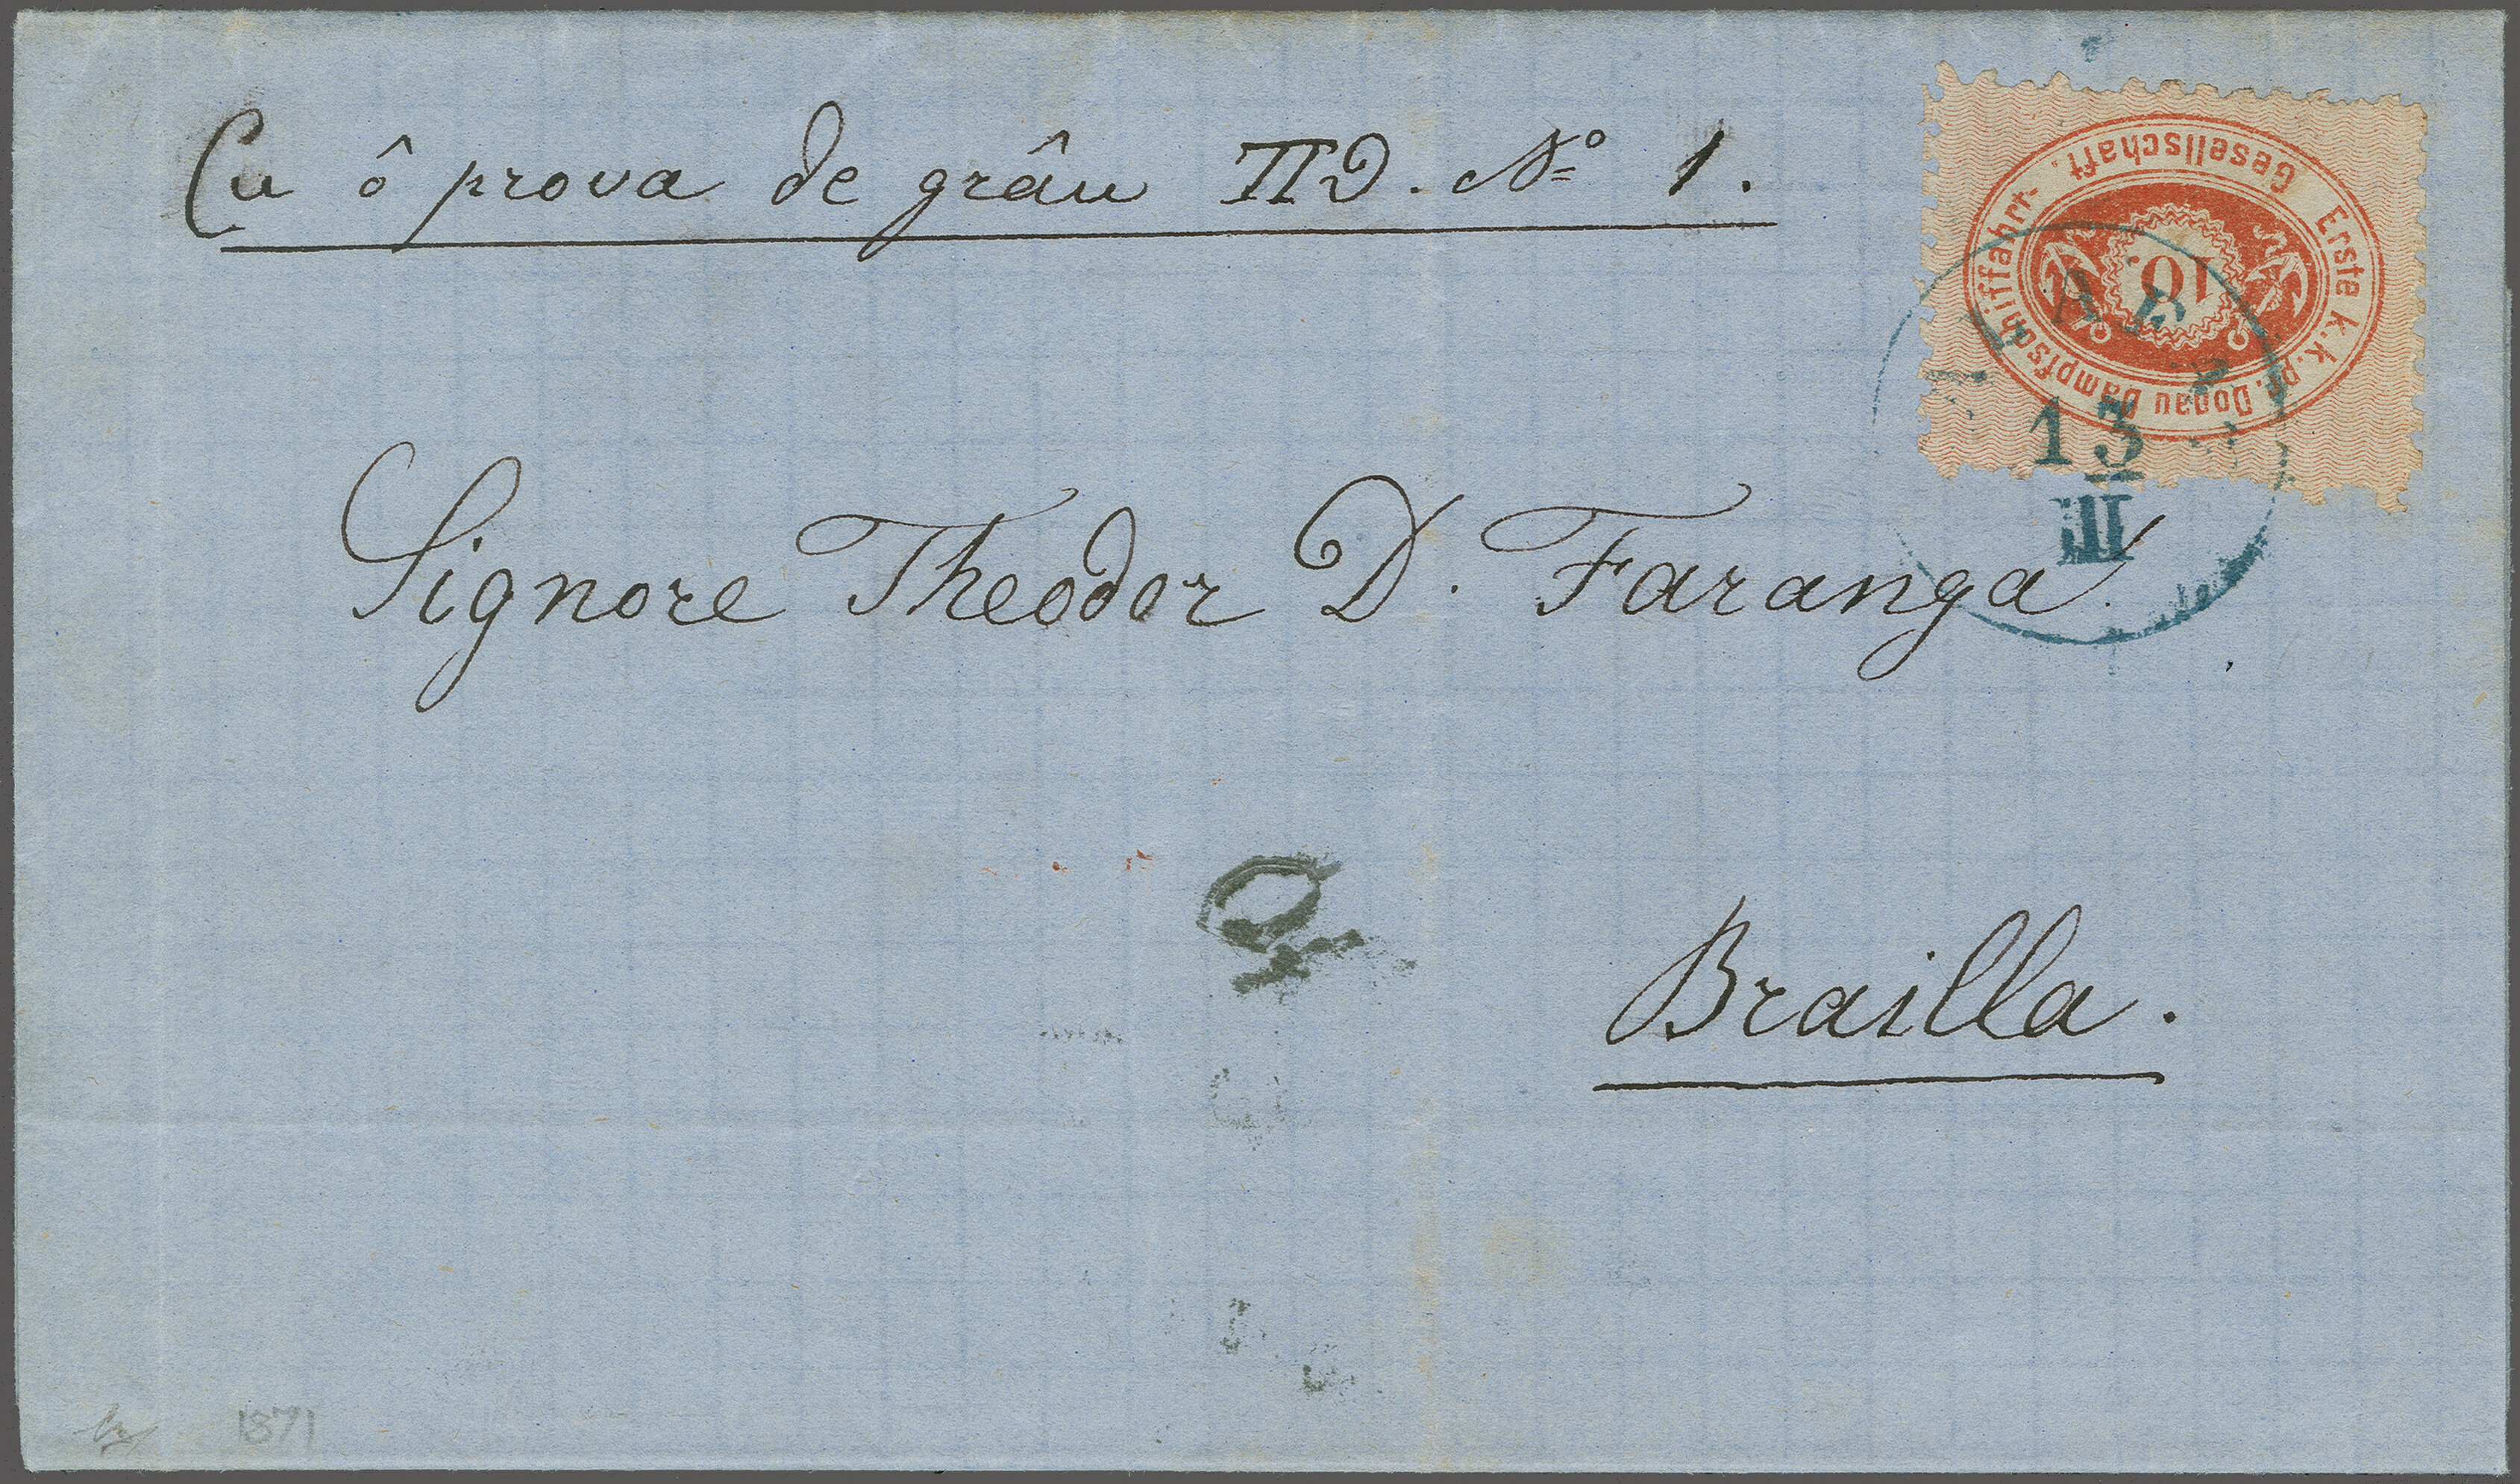 Cu ô prova de grâu ΠD. Nº 1.
Erste k. k. pr. Donau Dampfschiffahrt-
Gesellschaft.
10
13
III
Signore Theodor D. Faranga.
Brailla.
1871